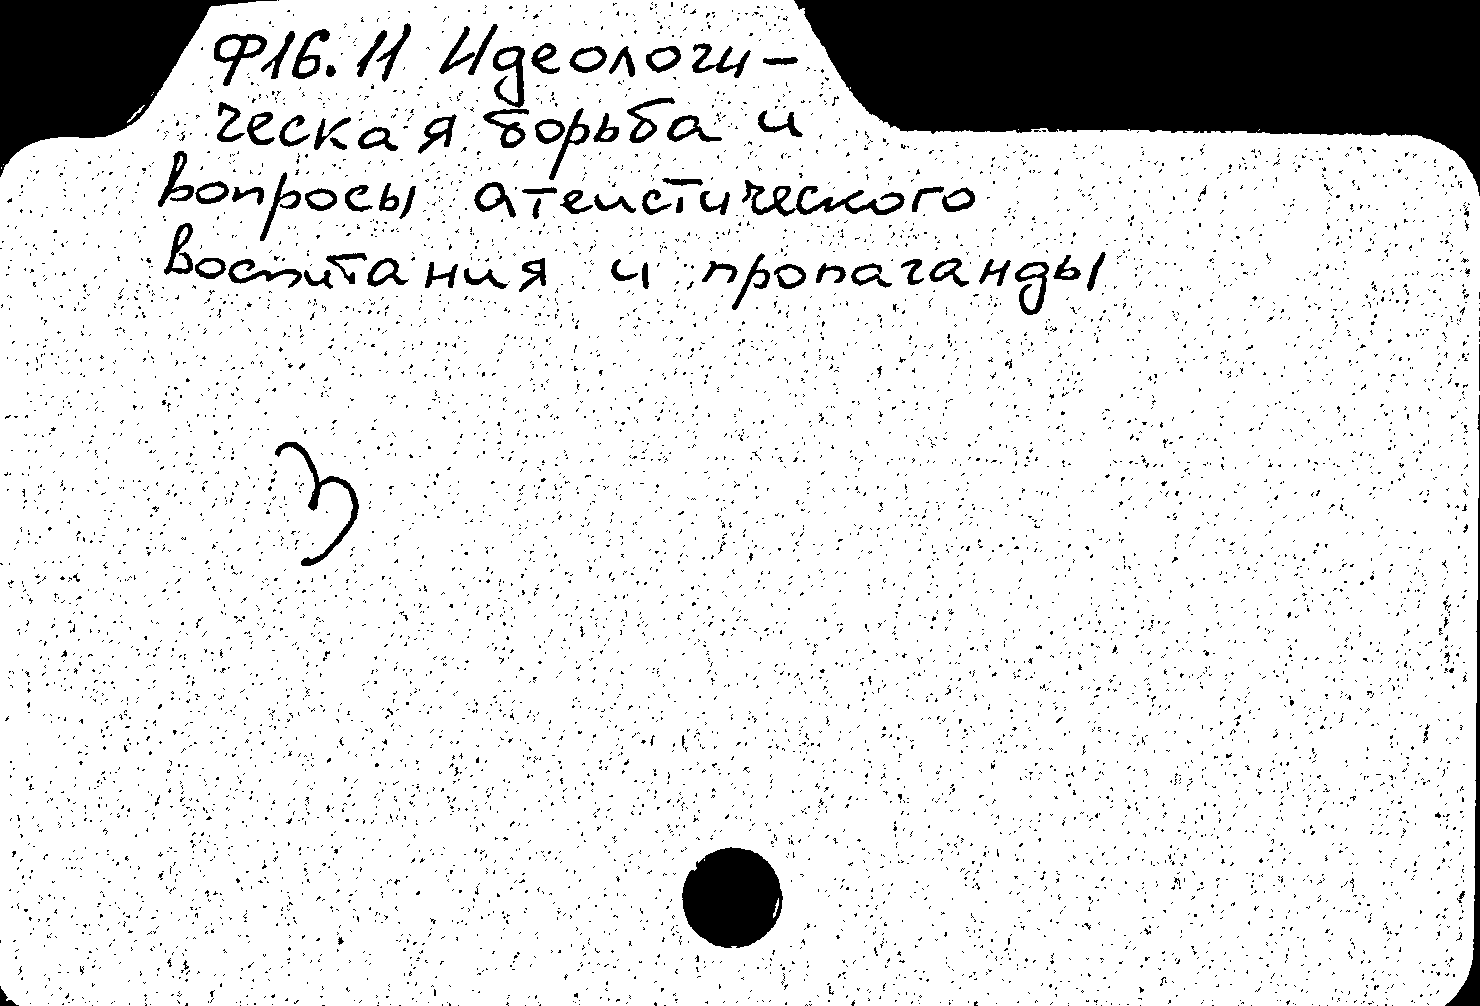 Ф16.11 Идеологи-
ческая борьба и
вопросы атеистического
воспитания и пропаганды
З